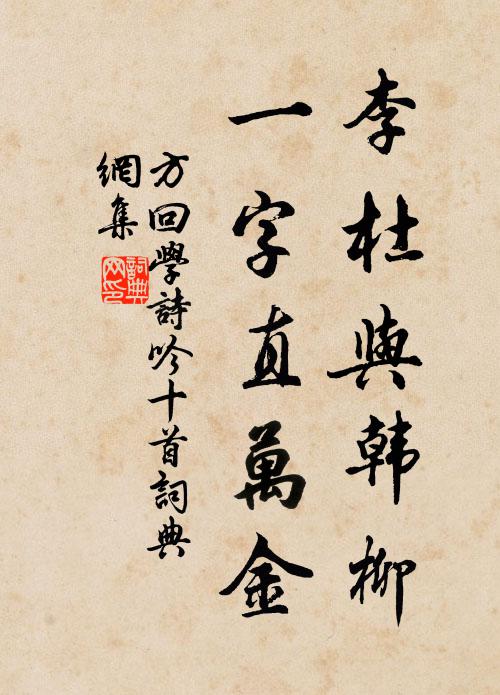 李杜與韓柳
一字直萬金
方回學詩吟十首詞典
網集
詞典
网印